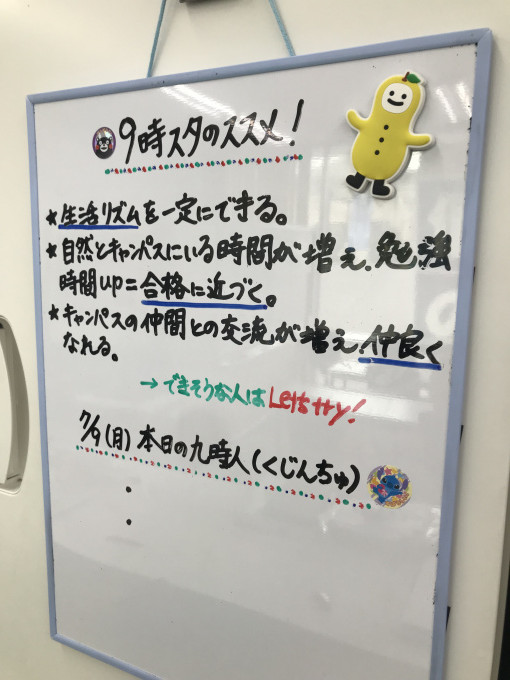 9時スタのススメ!
★生活リズムを一定にできる。
★自然とキャンパスにいる時間が増え、勉強
時間up=合格に近づく。
★キャンパスの仲間との交流が増え、仲良く
なれる。
→できそうな人はLet's try!
7/9(月)本日の九時人(くじんちゅ)
・
・